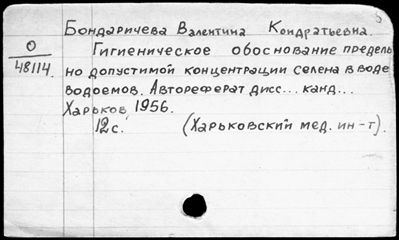 Бондаричева Валентина Кондратьевна.
О
48114.
Гигиеническое обоснование предель
но допустимой концентрации селена в воде
водоемов. Автореферат дисс... канд...
Харьков 1956.
12 с. (Харьковский мед. ин-т).